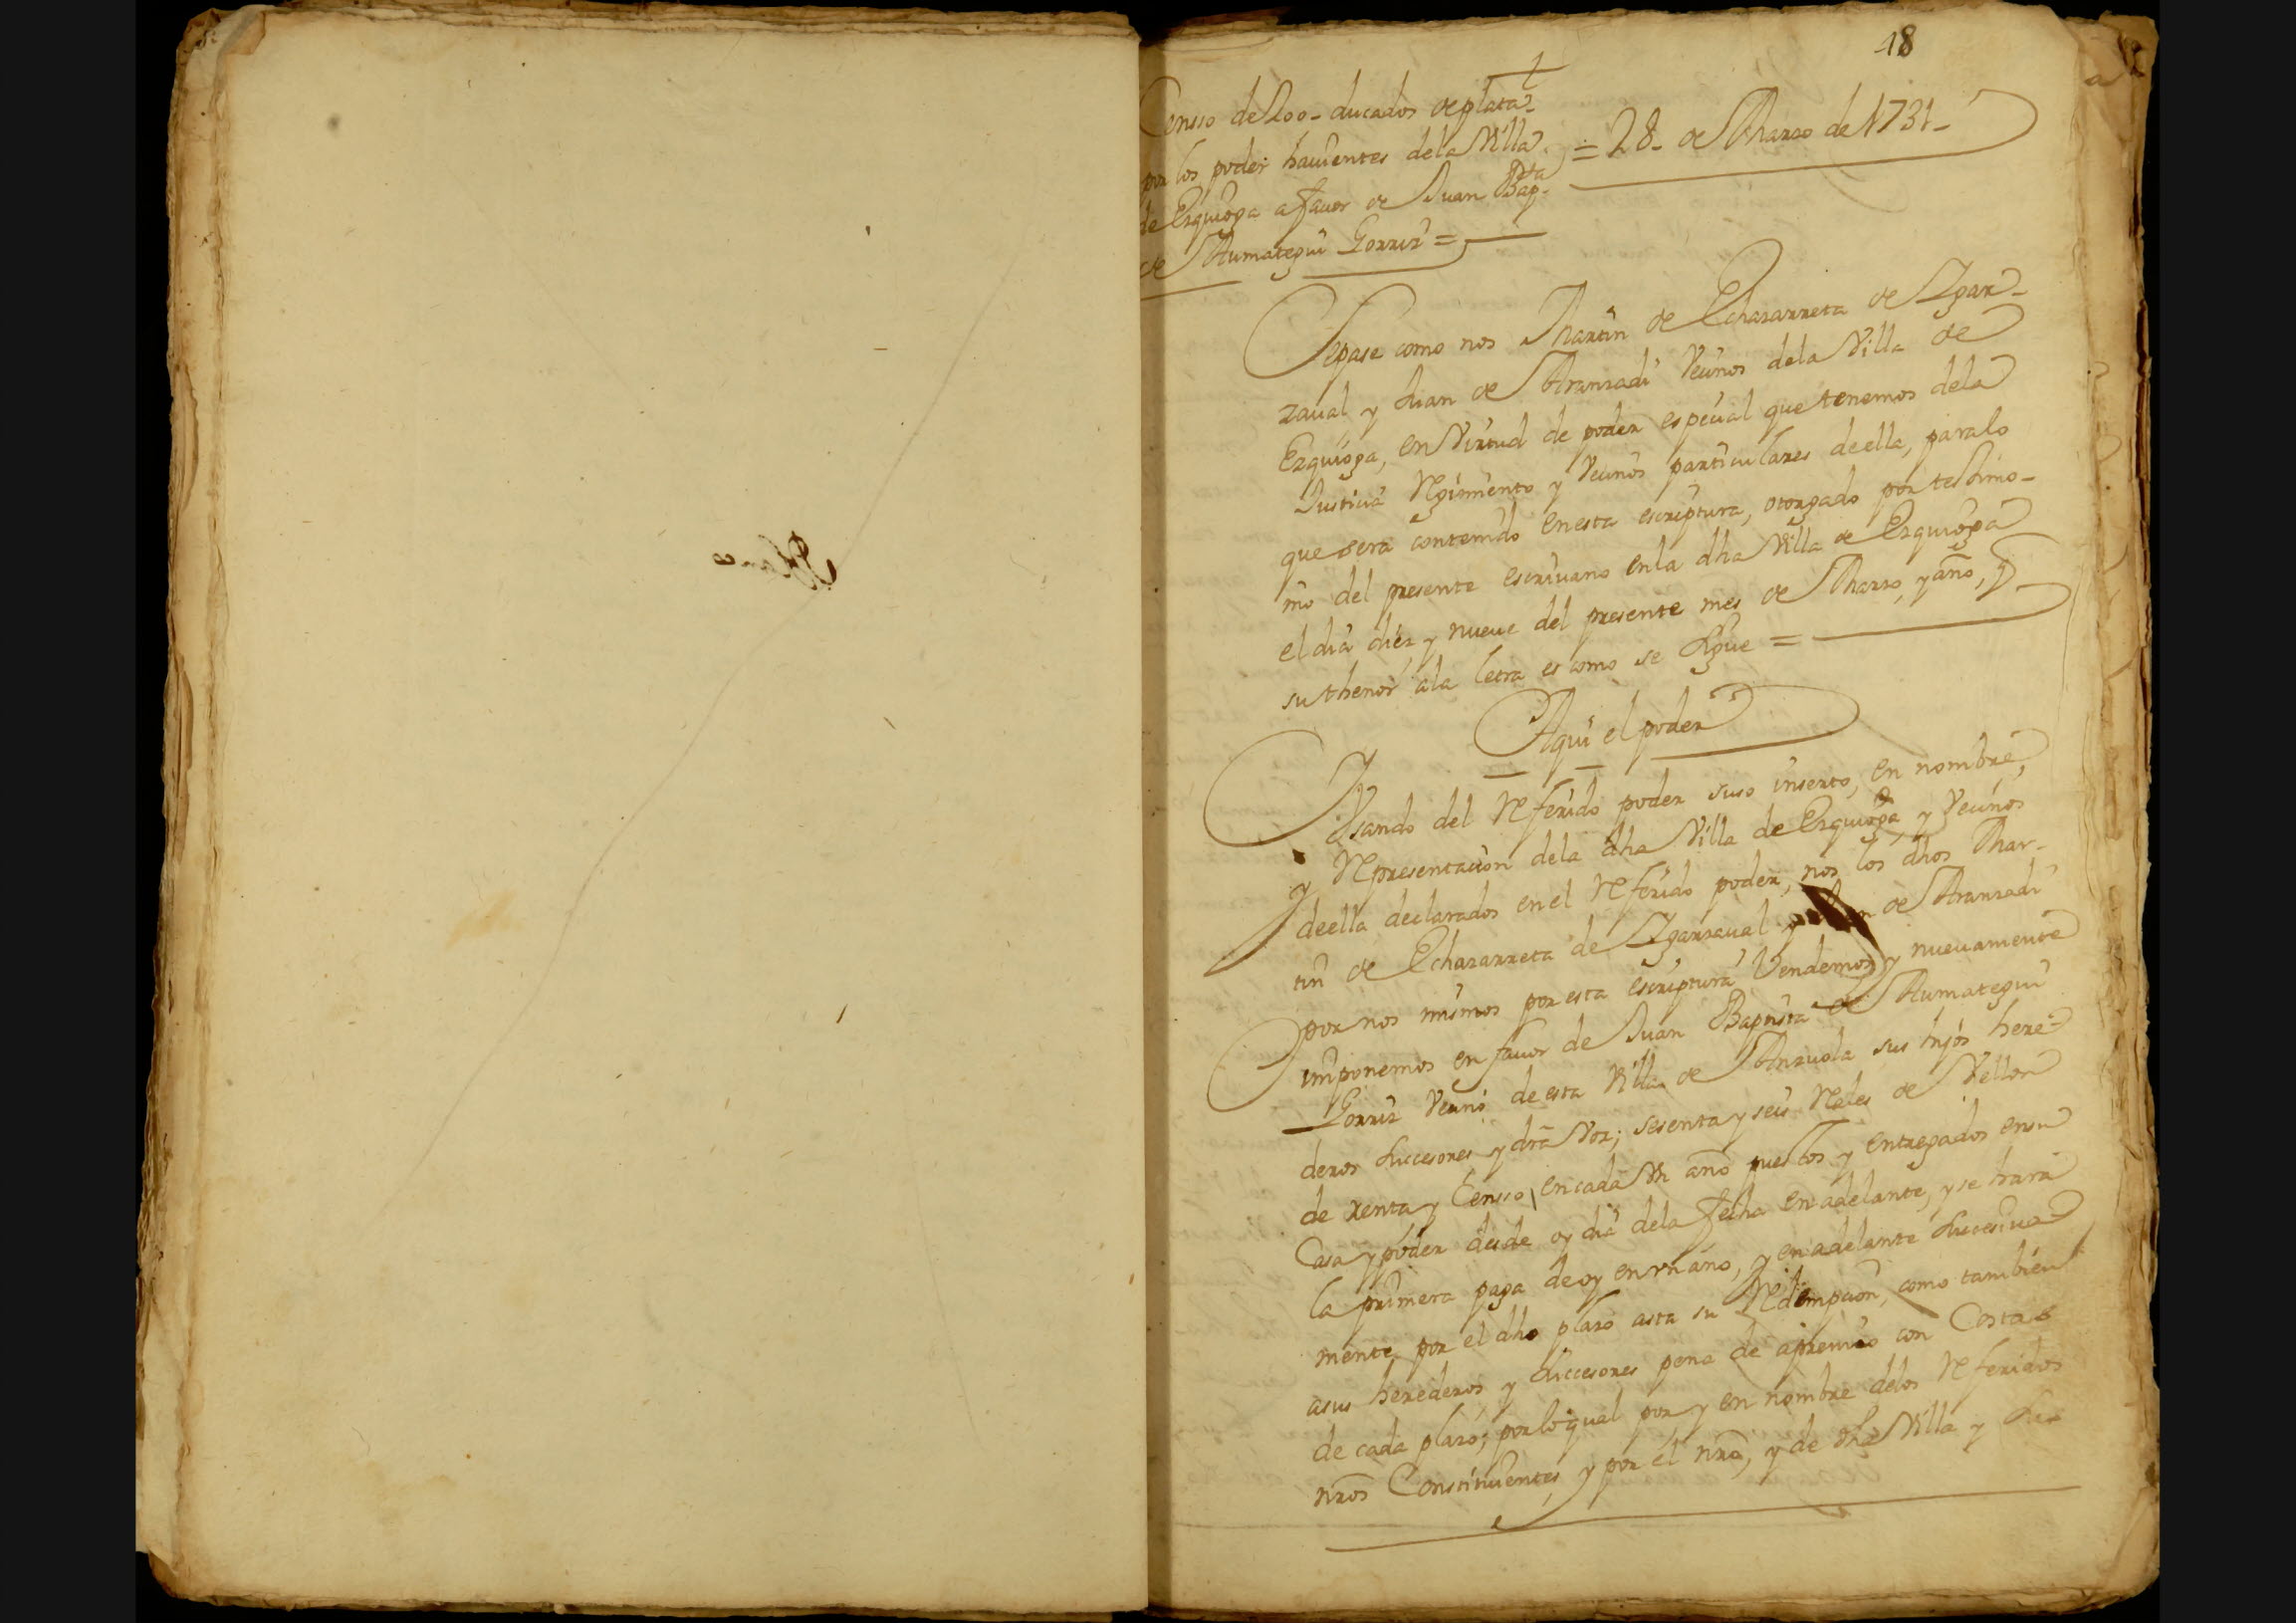 Blanco
48
Censso de 200- ducados de plata-
por los poder hauientes dela Villa
de Ezquioga a favor de Juan Bapta
de Aumategui Gorriz =
= 28- de Marzo de 1731-
Sepase como nos Martin de Echazarreta de Izgar-
zaual y Juan de Aranzadi Vecinos dela Villa de
Ezquioga, en Virtud de poder especial que tenemos dela
Justicia Regimiento y Vecinos particulares de ella, para lo
que sera contenido en esta escriptura, otorgado por testimo-
nio del presente escriuano en la dha Villa de Ezquioga
el dia diez y nueue del presente mes de Marzo, y año, q
su thenor ala letra es como se sigue =
Aqui el poder
Vsando del Referido poder suso inserto, en nombre,
y Representacion dela dha Villa de Ezquioga, y Vecinos
de ella declarados en el Referido poder, nos los dhos Mar-
tin de Echazarreta de Izgarzaual y Juan de Aranzadi
por nos mismos por esta escriptura Vendemos y nueuamente
imponemos en fauor de Juan Baptista de Aumategui
Gorriz Vecino de esta Villa de Anzuola sus hijos here-
deros succesores y dra Voz; sesenta y seis Reales de Vellon
de renta y Censso, en cada Vn año puestos y entregados en su
Casa y poder desde oy dia dela fecha en adelante, y se hara
la primera paga de oy en vn año, y en adelante sucesiua
mente por el dho plazo asta su Redempcion, como tambien
a sus herederos y succesores pena de apremio con Costas
de cada plazo; por lo qual por y en nombre delos Referidos
nros Constituientes, y por el nro, y de dha Villa y sus